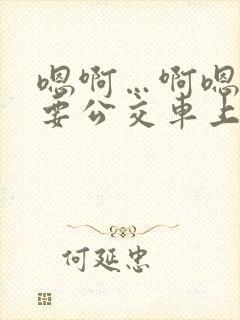 嗯啊…啊嗯
要公交车上
何延忠